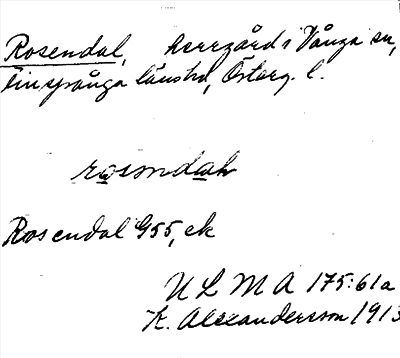 Rosendal, herrgård i Vånga sn,
Finspånga länshd, Österg. l.
rosendah
Rosendal G55, ek
ULMA 175:61a
K. Alexanderson 1913